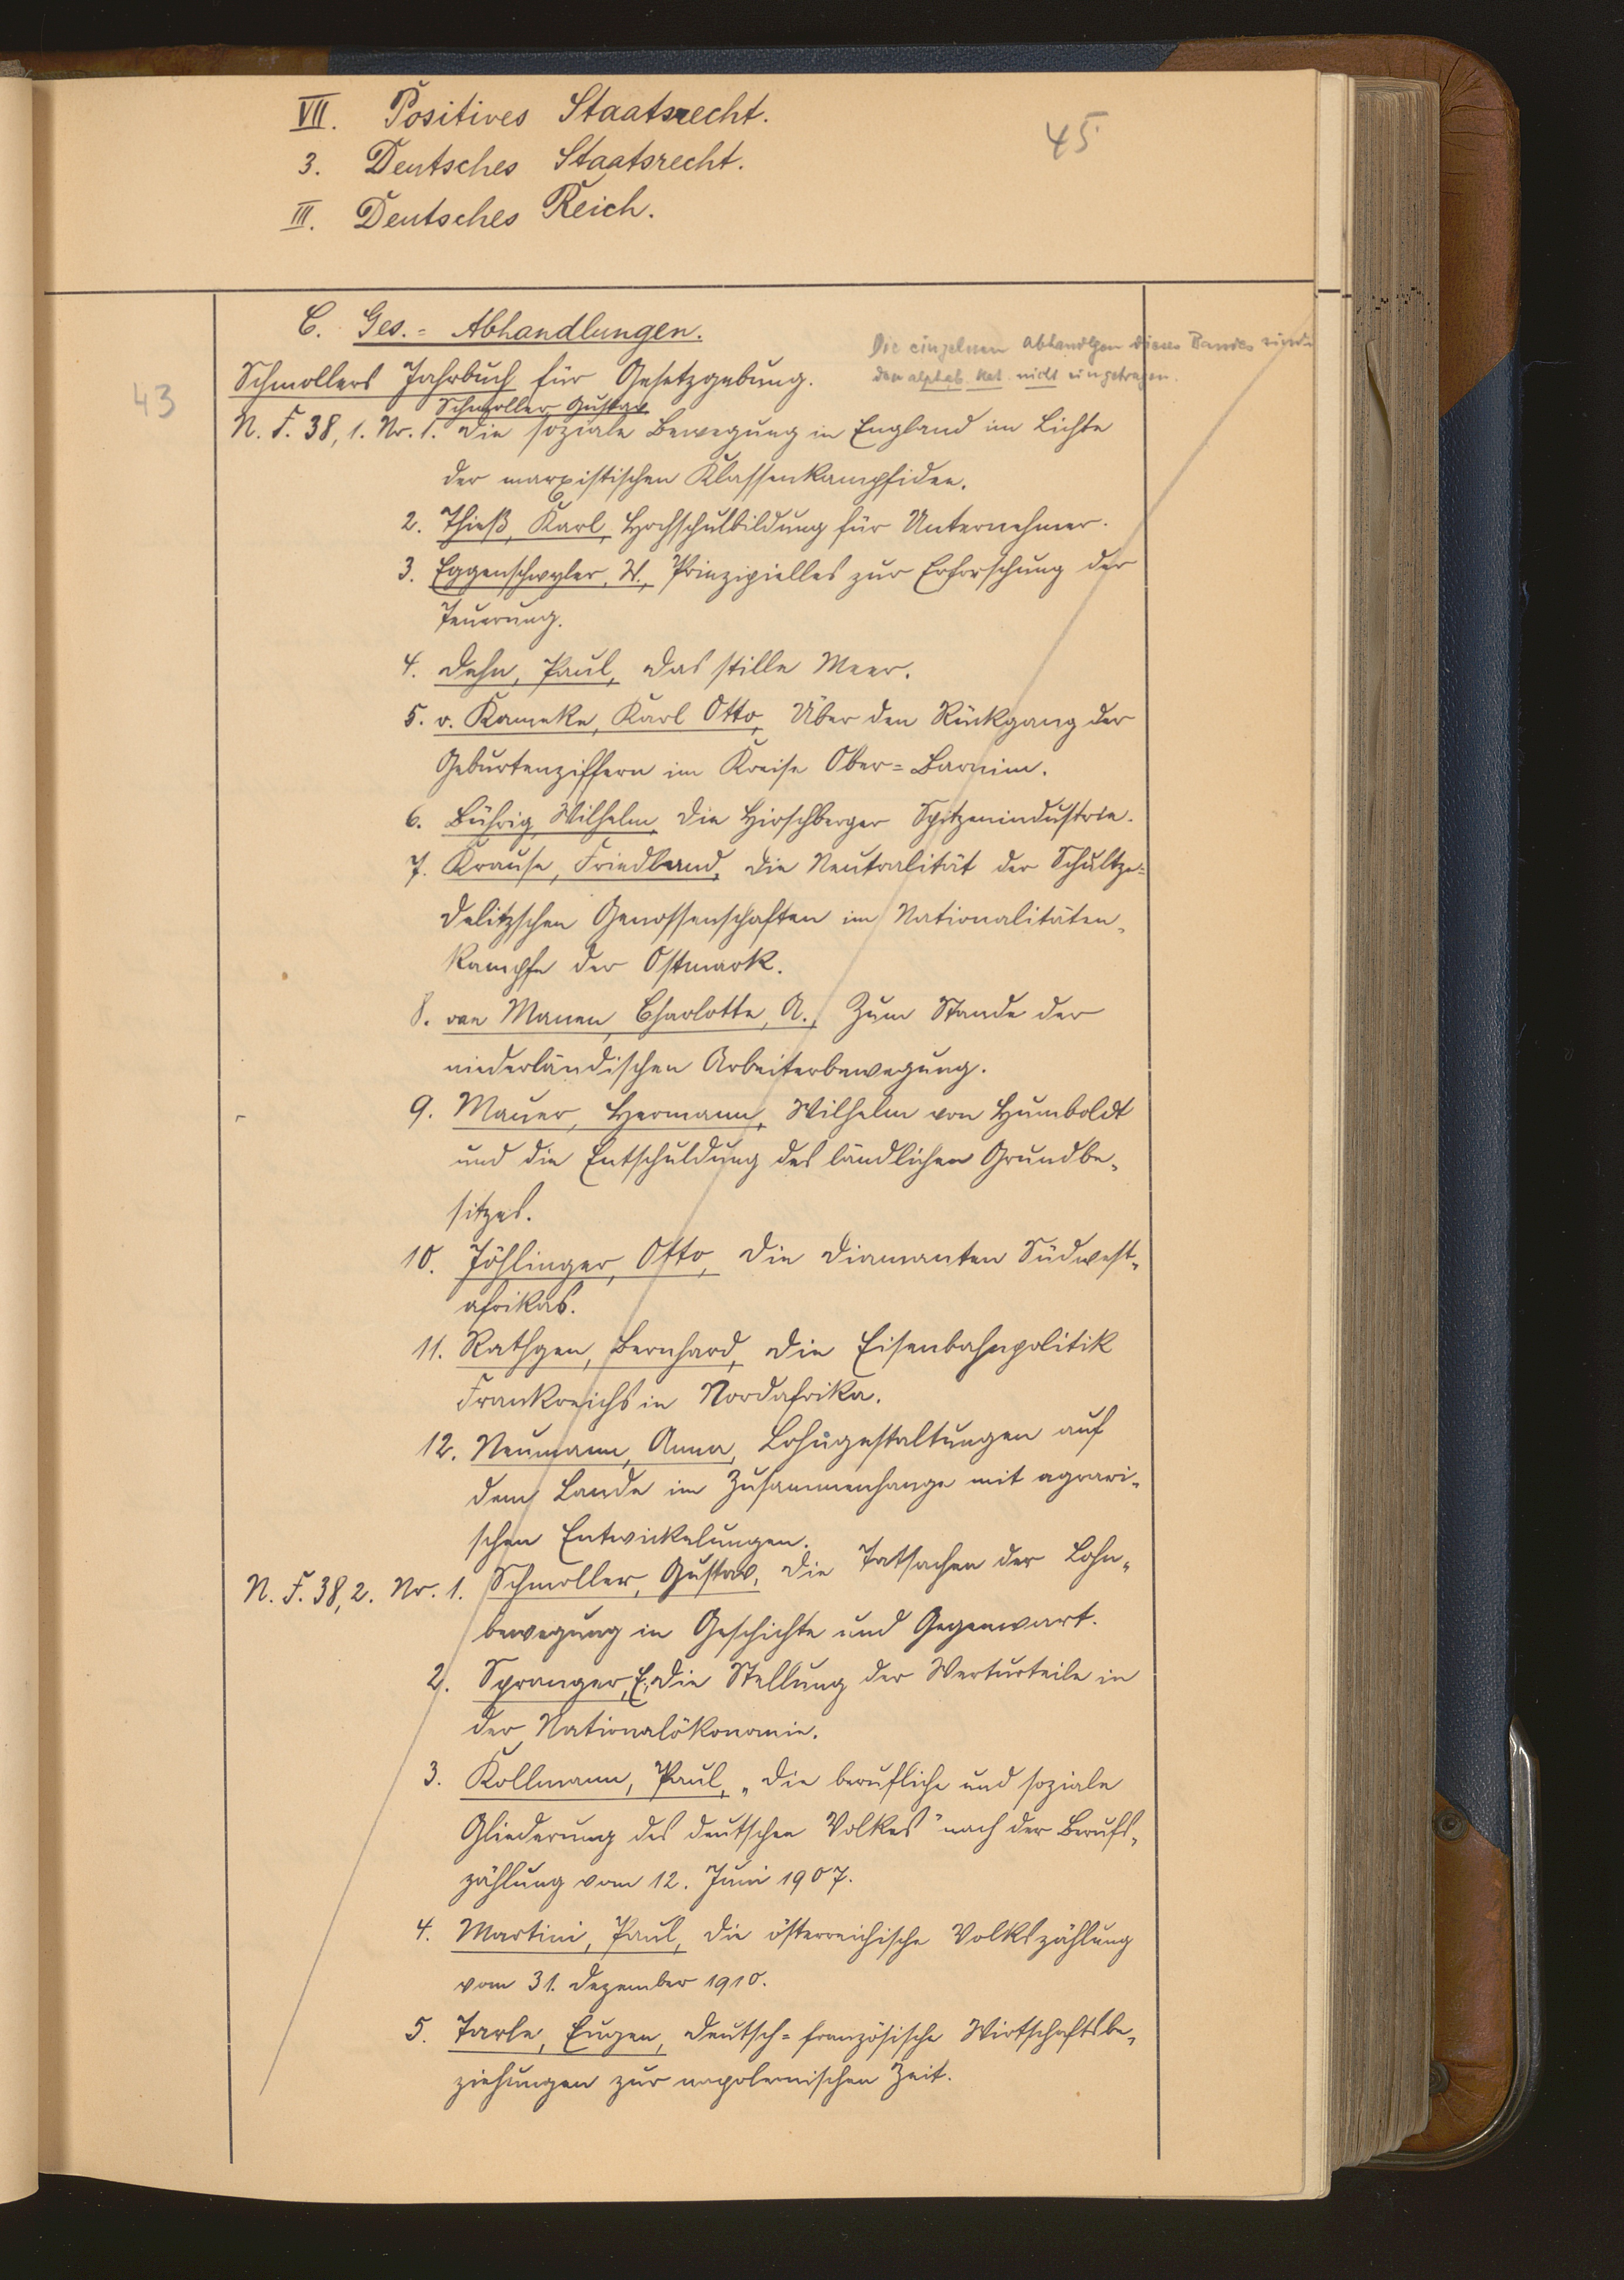 VII. Positives Staatsrecht.
45
3. Deutsches Staatsrecht.
III. Deutsches Reich.
C. Ges.= Abhandlungen.
Die einzelnen Abhandlgen dieses Bandes sind i
den alphab. Kat. nicht eingetragen.
Schmollers Jahrbuch für Gesetzgebung.
43
Schmoller, Gustav
N. F. 38, 1. Nr. 1. Die soziale Bewegung in England im Lichte
der marxistischen Klassenkampfidee.
2. Thieß, Karl, Hochschulbildung für Unternehmer.
3. Eggenschwyler, W., Prinzipielles zur Erforschung der
Teuerung.
4. Dehn, Paul, Das stille Meer.
5. v. Kameke, Karl Otto, Über den Rückgang der
Geburtenziffern im Kreise Ober=Barnim.
6. Bührig, Wilhelm, Die Hirschberger Spitzenindustrie.
7. Krause, Friedland, Die Neutralität der Schultze=
Delitzschen Genossenschaften im Nationalitäten-
kampfe der Ostmark.
8. van Manen, Charlotte, A., Zum Stande der
niederländischen Arbeiterbewegung.
9. Mauer, Hermann, Wilhelm von Humboldt
und die Entschuldung des ländlichen Grundbe-
sitzes.
10. Jöhlinger, Otto, Die Diamanten Südwest-
afrikas.
11. Rathgen, Bernhard, Die Eisenbahnpolitik
Frankreichs in Nordafrika.
12. Neumann, Anna, Lohngestaltungen auf
dem Lande im Zusammenhange mit agrari-
schen Entwickelungen.
N. F. 38, 2. Nr. 1. Schmoller, Gustav, Die Tatsachen der Lohn-
bewegung in Geschichte und Gegenwart.
2. Spranger, E., Die Stellung der Werturteile in
der Nationalökonomie.
3. Kollmann, Paul, „Die berufliche und soziale
Gliederung des deutschen Volkes" nach der Berufs-
zählung vom 12. Juni 1907.
4. Martini, Paul, Die österreichische Volkszählung
vom 31. Dezember 1910.
5. Tarle, Eugen, Deutsch=französische Wirtschaftsbe-
ziehungen zur napoleonischen Zeit.